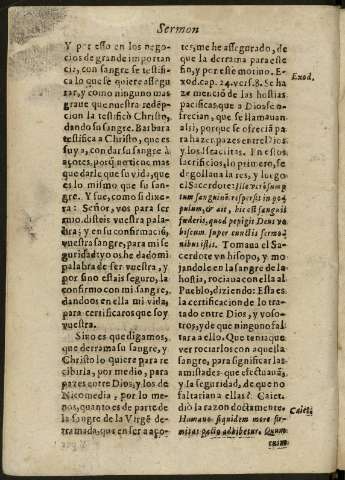 Sermon
Y por esso en los nego-
cios de grande importan
cia, con sangre se testifi-
ca lo que se quiere assegu
rar, y como ninguno mas
graue que nuestra redēp-
cion la testificò Christo,
dando su sangre. Barbara
testifica a Christo, que es
suya, con dar su sangre à
açotes, porq̄ no tiene mas
que darle que su vida, que
es lo mismo que su san-
gre. Y fue, como si dixe-
ra: Señor, vos para ser
mio, disteis vuestra pala-
bra; y en su confirmaciõ,
vuestra sangre, para mi se
guridad: yo os he dado mi
palabra de ser vuestra, y
por si no estais seguro, la
confirmo con mi sangre,
dandoos en ella mi vida,
para certificaros que soy
vuestra.
Sino es que digamos,
que derrama su sangre, y
Christo lo quiere para re
cibirla, por medio, para
pazes entre Dios, y los de
Nicomedia, por lo me-
nos, quanto es de parte de
la sangre de la Virgē de-
rramada, que en ser aço-
tes, me ha assegurado, de
que la derrama para este
fin, y por este motiuo. E-
xod. cap. 24. vers. 8. Se ha
ze menciõ de las hostias
pacificas que a Dios se o-
frecian, que se llamauan
assi, porque se ofreciã pa-
ra hazer pazes entre Dios
y los Israelitas. En estos
sacrificios, lo primero, se
degollaua la res, y luego
el Sacerdote: Ille verò sump
tum sanguinē respersit in po-
pulum, & ait, hic est sanguis
fœderis, quod pepigit Deus vo
biscum super cunctis sermo-
nibus istis. Tomaua el Sa-
cerdote vn hisopo, y mo
jandole en la sangre de la
hostia, rociaua con ella al
Pueblo, diziendo: Esta es
la certificacion de lo tra-
tado entre Dios, y voso-
tros, y de que ninguno fal
tara a ello. Que tenia que
ver rociarlos con aquella
sangre, para significar las
amistades que efectuauã,
y la seguridad, de que no
faltarian a ellas? Caiet.
diò la razon doctamente.
Humano siquidem more fir-
mitas pactis adhibetur. Quun
Exod.
Caiet.